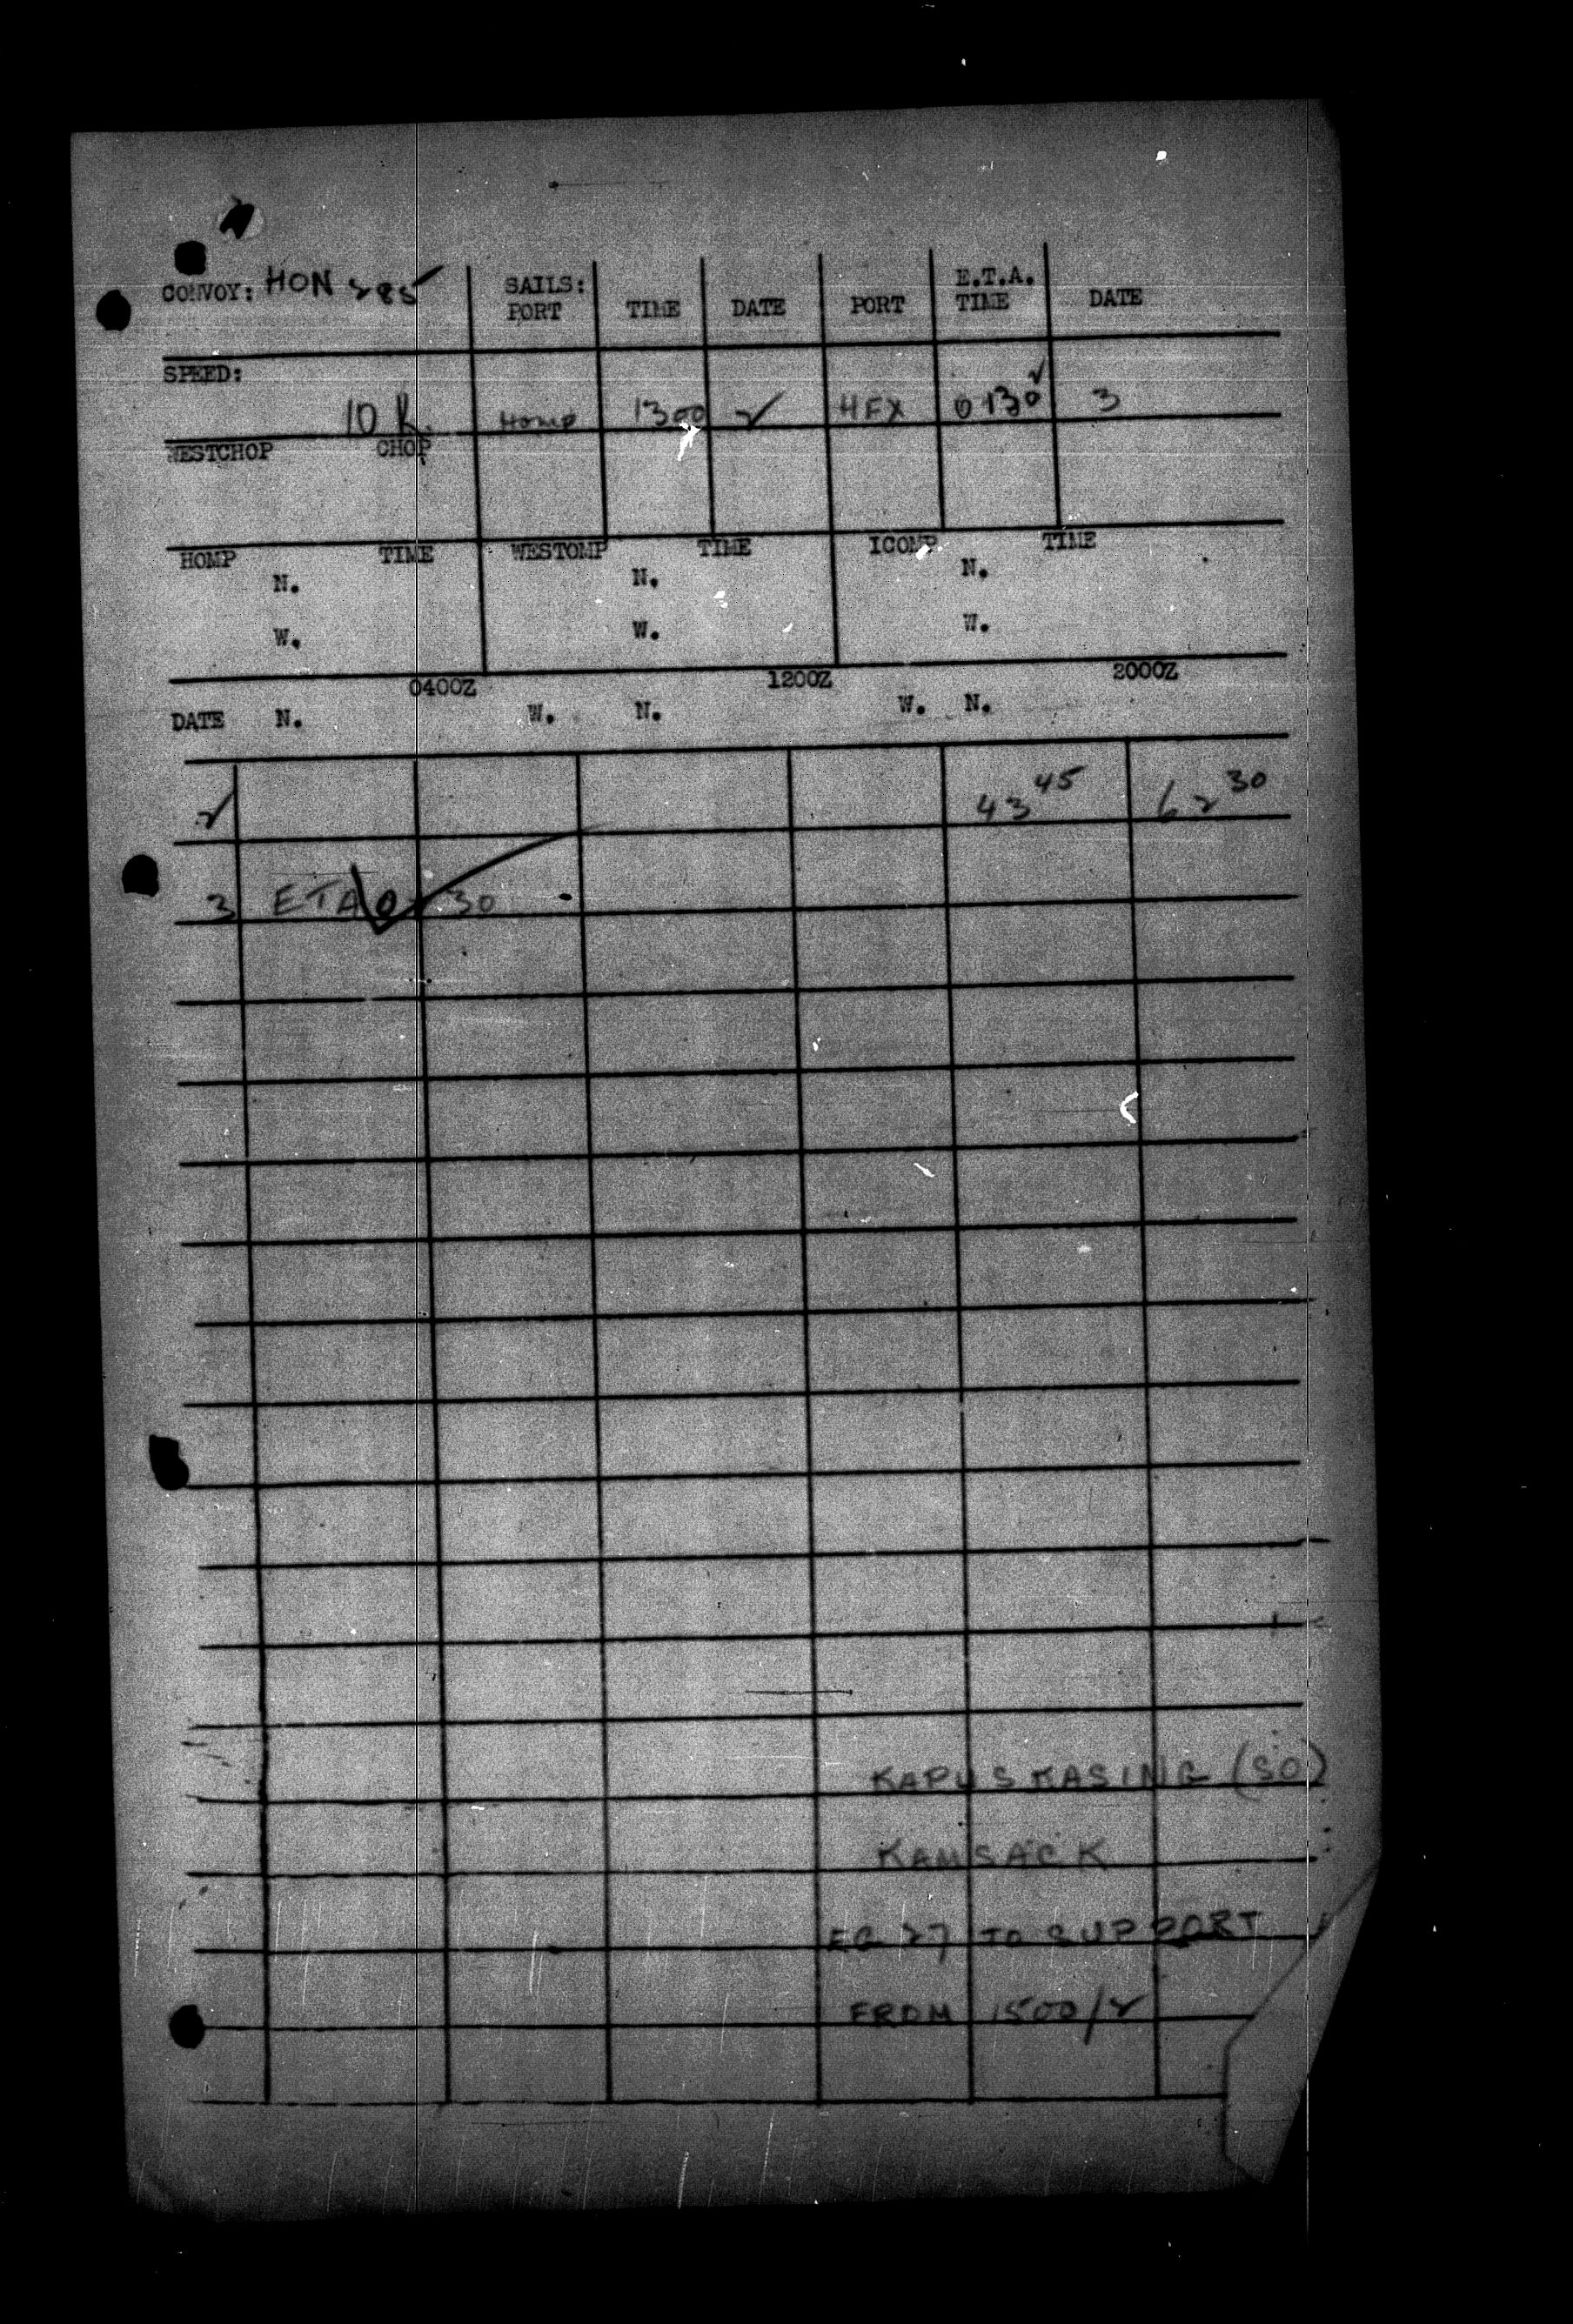 CONVOY: HON 285
SAILS: E.T.A.
PORT TIME DATE PORT TIME DATE
SPEED:
10 K. Homp 1300 2 HFX 0130 3
WESTCHOP CHOP
HOMP TIME WESTOMP TIME ICOMP TIME
N. N. N.
W. W. W.
0400Z 1200Z 2000Z
DATE N. W. N. W. N.
2 43 45 62 30
3 ETA 30
KAPUSKASING (SO)
KAMSACK
EG 27 TO SUPPORT
FROM 1500/2